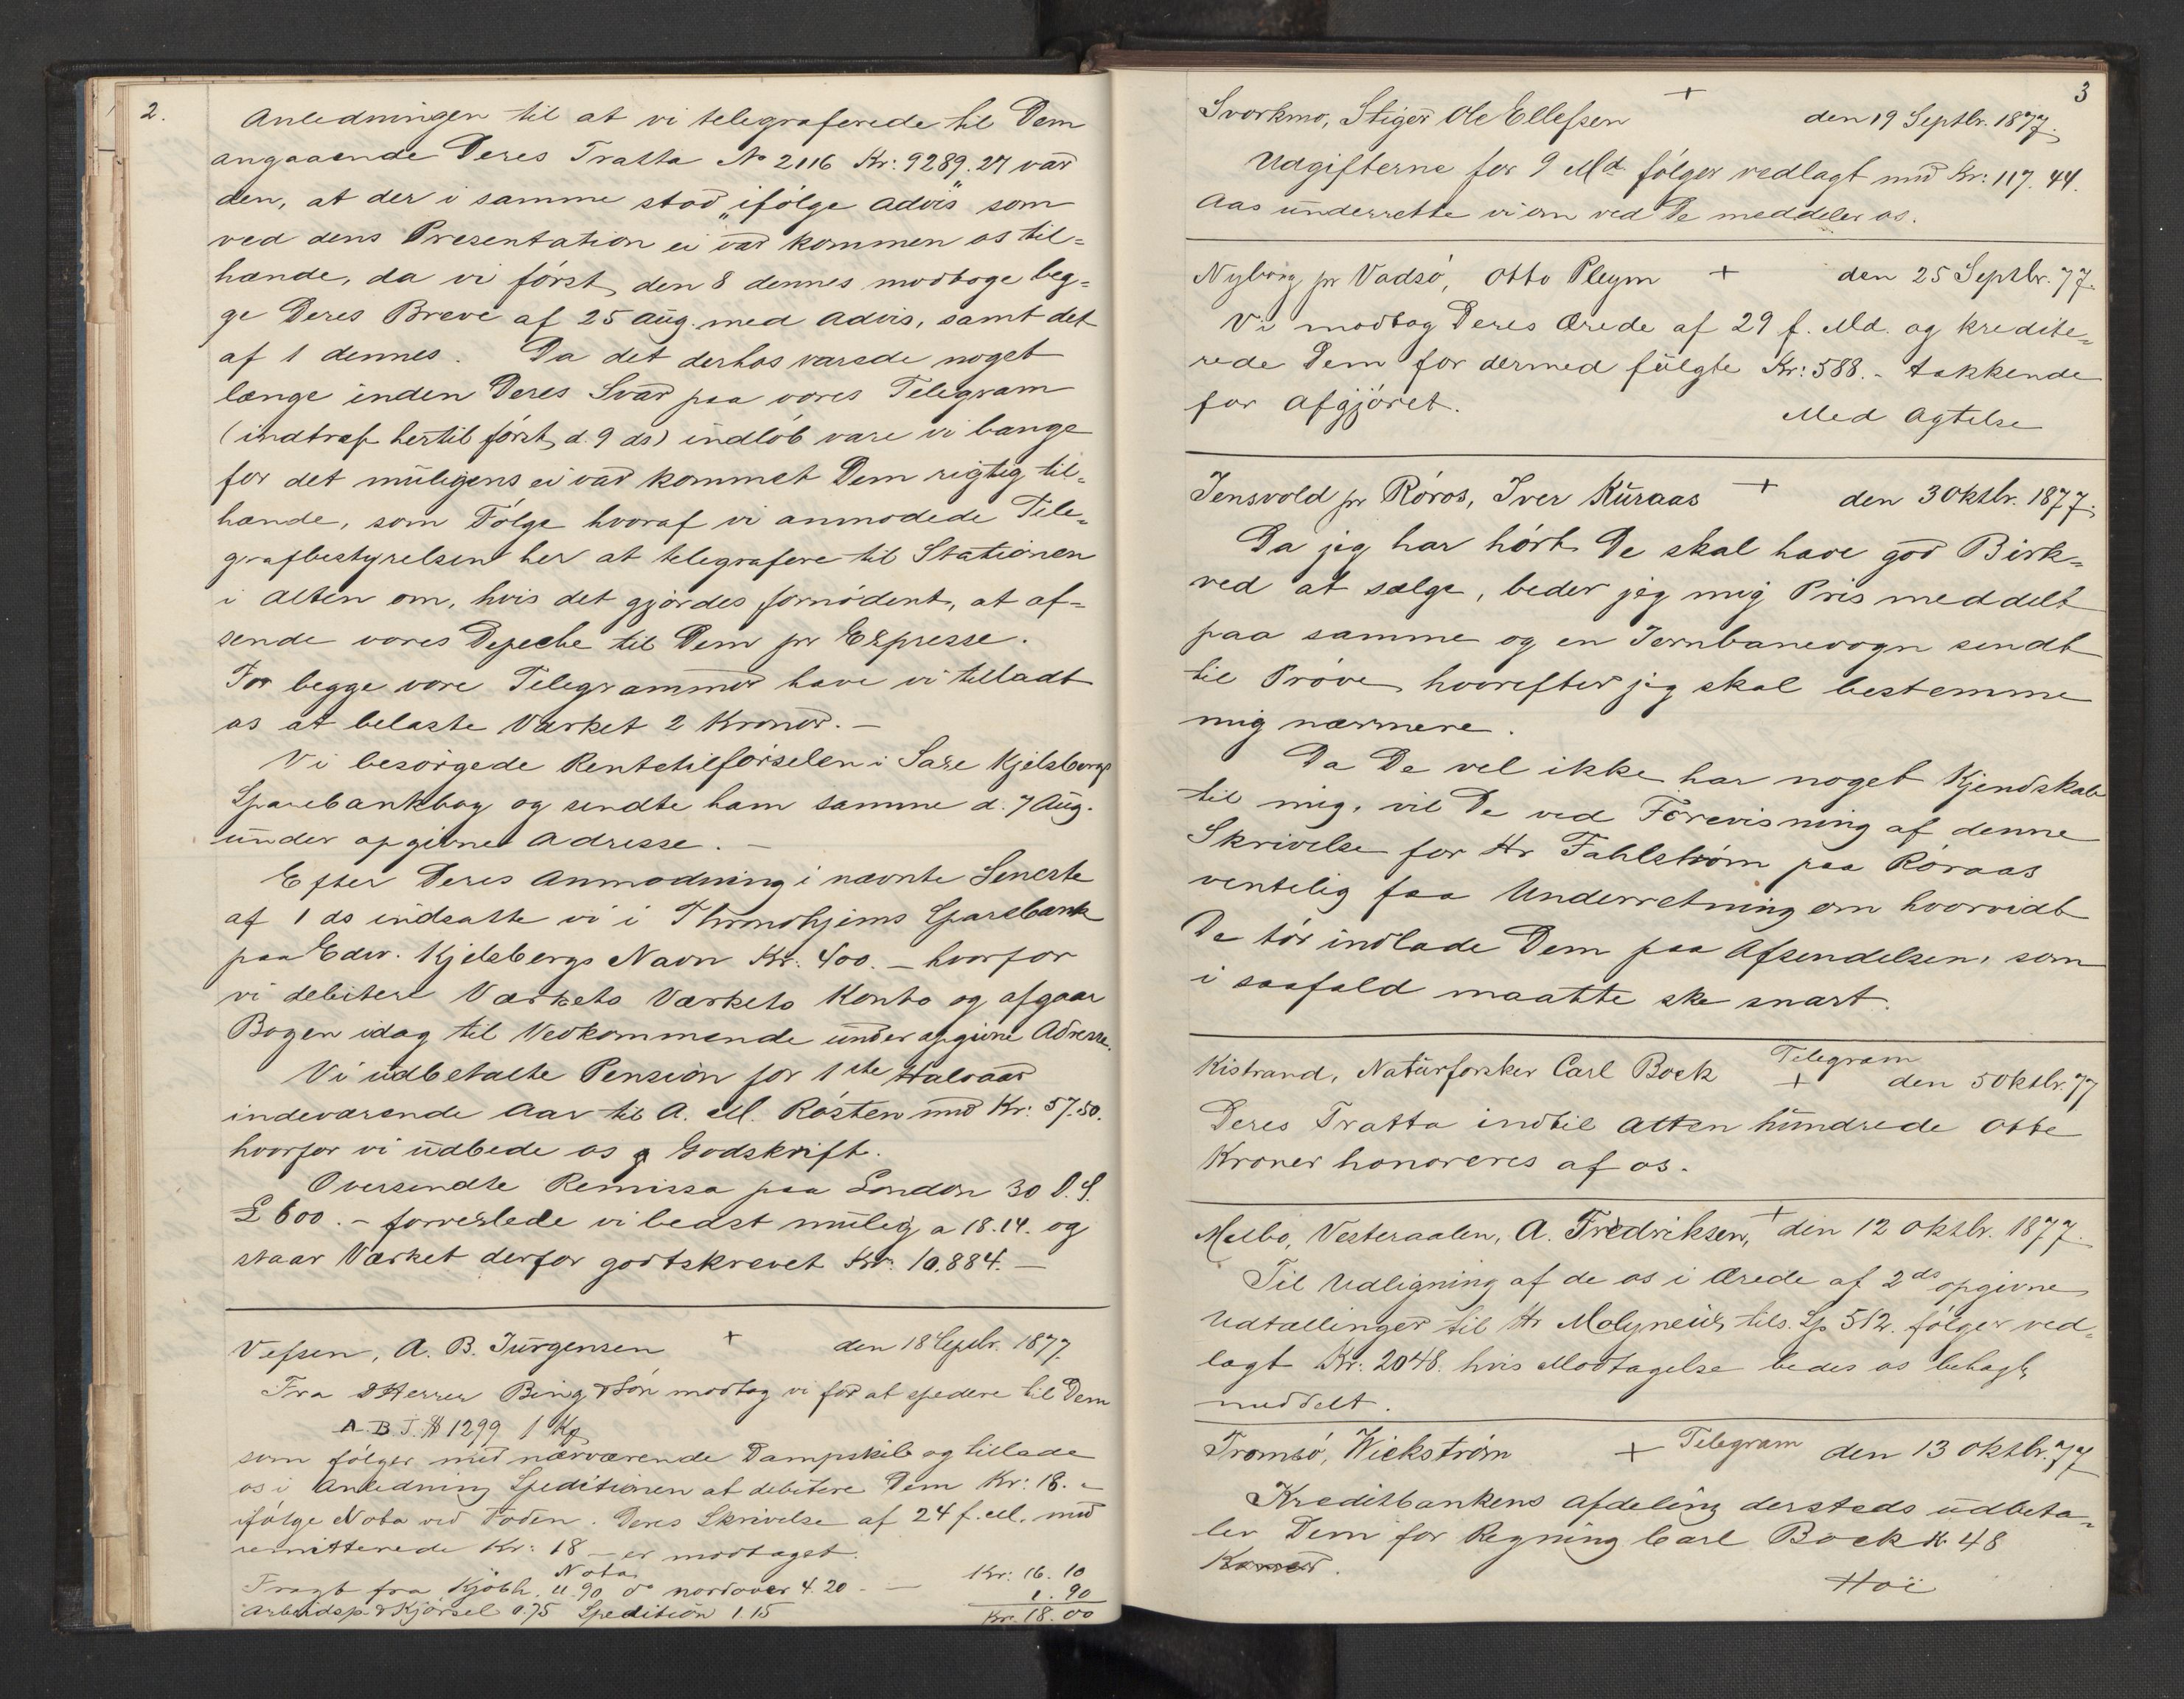 2.
Anledningen til at vi telegraferede til Dem
angaaende Deres Tratta No 2116 Kr: 9289.27 var
den, at der i samme stod „ifölge advis" som
ved dens Presentation ei var kommen os til=
hænde, da vi först den 8 dennes modtoge beg=
ge Deres Breve af 25 Aug. med Advis, samt det
af 1 dennes. Da det derhos varede noget
længe inden Deres Svar paa vores Telegram
(indtraf hertil först d. 9 ds) indlöb vare vi bange
for det muligens ei var kommet Dem rigtig til=
hænde, som Fölge hvoraf vi anmodede Tele=
grafbestyrelsen her at telegrafere til Stationen
i Alten om, hvis det gjördes fornödent, at af=
sende vores Depeche til Dem pr Expresse.
For begge vore Telegrammer have vi tilladt
os at belaste Værket 2 Kroner. –
Vi besörgede Rentetilförselen i Sare Kjelsbergs
Sparebankbog og sendte ham samme d. 7 Aug.
under opgivne Adresse. –
Efter Deres Anmodning i nævnte Seneste
af 1 ds indsatte vi i Throndhjems Sparebank
paa Edv. Kjelsbergs Navn Kr. 400. – hvorfor
vi debitere Værkets Værkets Konto og afgaar
Bogen idag til Vedkommende under opgivne Adresse.
Vi udbetalte Pension for 1ste Halvaar
indeværende Aar til A. M. Rösten med Kr: 57.50.
hvorfor vi udbede os g Godskrift.
Oversendte Remissa paa London 30 D. S.
£ 600. – forvexlede vi bedst mulig a 18.14. og
staar Værket derfor godtskrevet Kr. 10.884. –
Vefsen, A. B. Jürgensen + den 18 Septbr. 1877.
Fra D'Herrer Bing & Sön modtog vi for at spedere til Dem
A. B. J. # 1299 1 Kf
som fölger med nærværende Dampskib og tillade
os i Anledning Speditionen at debitere Dem Kr: 18. –
ifölge Nota ved Foden. Deres Skrivelse af 24 f. M. med
remitterede Kr: 18 – er modtaget.
Nota
Fragt fra Kjöbh. 11.90 do nordover 4.20 – – Kr: 16.10
Arbeidsp. & Kjörsel 0.75 Spedition 1.15 1.90
Kr. 18.00
3
Svorkmo, Stiger Ole Ellefsen + den 19 Septbr. 1877.
Udgifterne for 9 Md. fölger vedlagt med Kr: 117.44.
Aas underrette vi om ved De meddeler os.
Nyborg pr Vadsö, Otto Pleym + den 25 Septbr. 77.
Vi modtog Deres Ærede af 29 f. Md. og kredite=
rede Dem for dermed fulgte Kr: 588. – takkende
for Afgjöret.
Med Agtelse
Jensvold pr Röros, Iver Kuraas + den 3 Oktbr. 1877.
Da jeg har hört De skal have god Birk=
ved at sælge, beder jeg mig Pris meddelt
paa samme og en Jernbanevogn sendt
til Pröve, hvorefter jeg skal bestemme
mig nærmere.
Da De vel ikke har noget Kjendskab
til mig, vil De ved Forevisning af denne
Skrivelse for Hr Fahlström paa Röraas
ventelig faa Underretning om hvorvidt
De tör indlade Dem paa Afsendelsen, som
i saafald maatte ske snart.
Kistrand, Naturforsker Carl Bock Telegram + den 5 Oktbr. 77
Deres Tratta indtil Atten hundrede Otte
Kroner honoreres af os.
Melbo, Vesteraalen, A. Fredriksen, + den 12 Oktbr. 1877.
Til Udligning af de os i Ærede af 2 ds opgivne
Udtællinger til Hr Molyneux tils. Sp 512. fölger ved=
lagt Kr: 2048. hvis Modtagelse bedes os behagl.
meddelt.
Tromsö, Wickström + Telegram den 13 Oktbr. 77
Kreditbankens Afdeling dersteds udbeta=
ler Dem for Regning Carl Bock Kr 48
Kroner.
Hoë